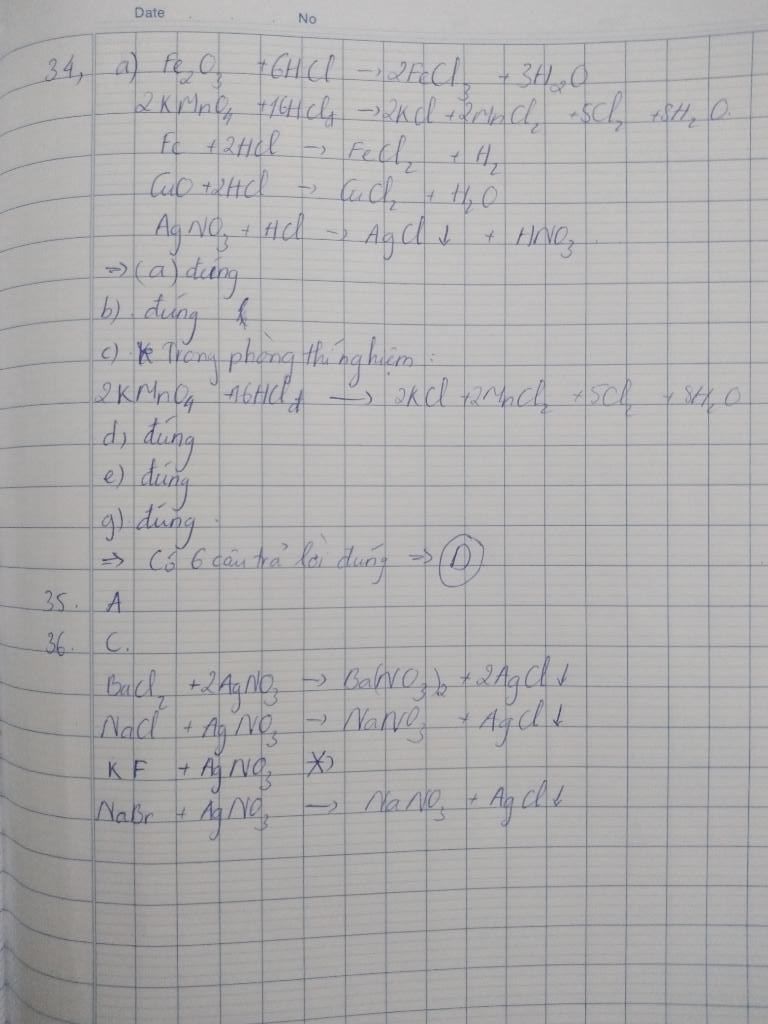 Date No
34, a) Fe₂O₃ + 6HCl → 2FeCl₃ + 3H₂O
2KMnO₄ + 16HClđ → 2KCl + 2MnCl₂ + 5Cl₂ + 8H₂O.
Fe + 2HCl → FeCl₂ + H₂
CuO + 2HCl → CuCl₂ + H₂O
AgNO₃ + HCl → AgCl ↓ + HNO₃.
=> (a) đúng
b) đúng
c) Trong phòng thí nghiệm:
2KMnO₄ + 16HClđ → 2KCl + 2MnCl₂ + 5Cl₂ + 8H₂O
d) đúng
e) đúng
g) đúng.
=> Có 6 câu trả lời đúng => D
35. A
36. C.
BaCl₂ + 2AgNO₃ → Ba(NO₃)₂ + 2AgCl ↓
NaCl + AgNO₃ → NaNO₃ + AgCl ↓
KF + AgNO₃ ↛
NaBr + AgNO₃ → NaNO₃ + AgCl ↓